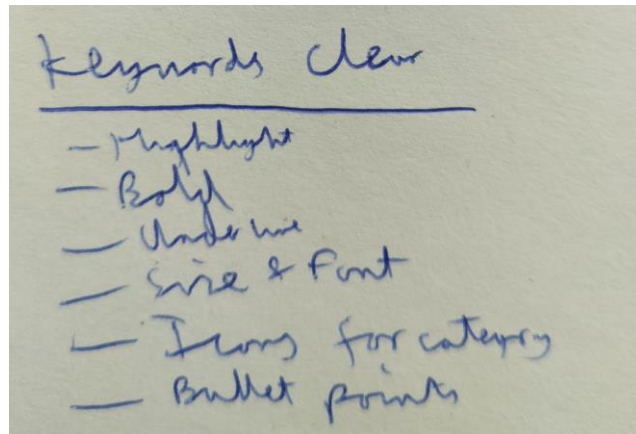 Keywords clear
- Highlight
- Bold
- Underline
- Size & Font
- Icons for category
- Bullet points